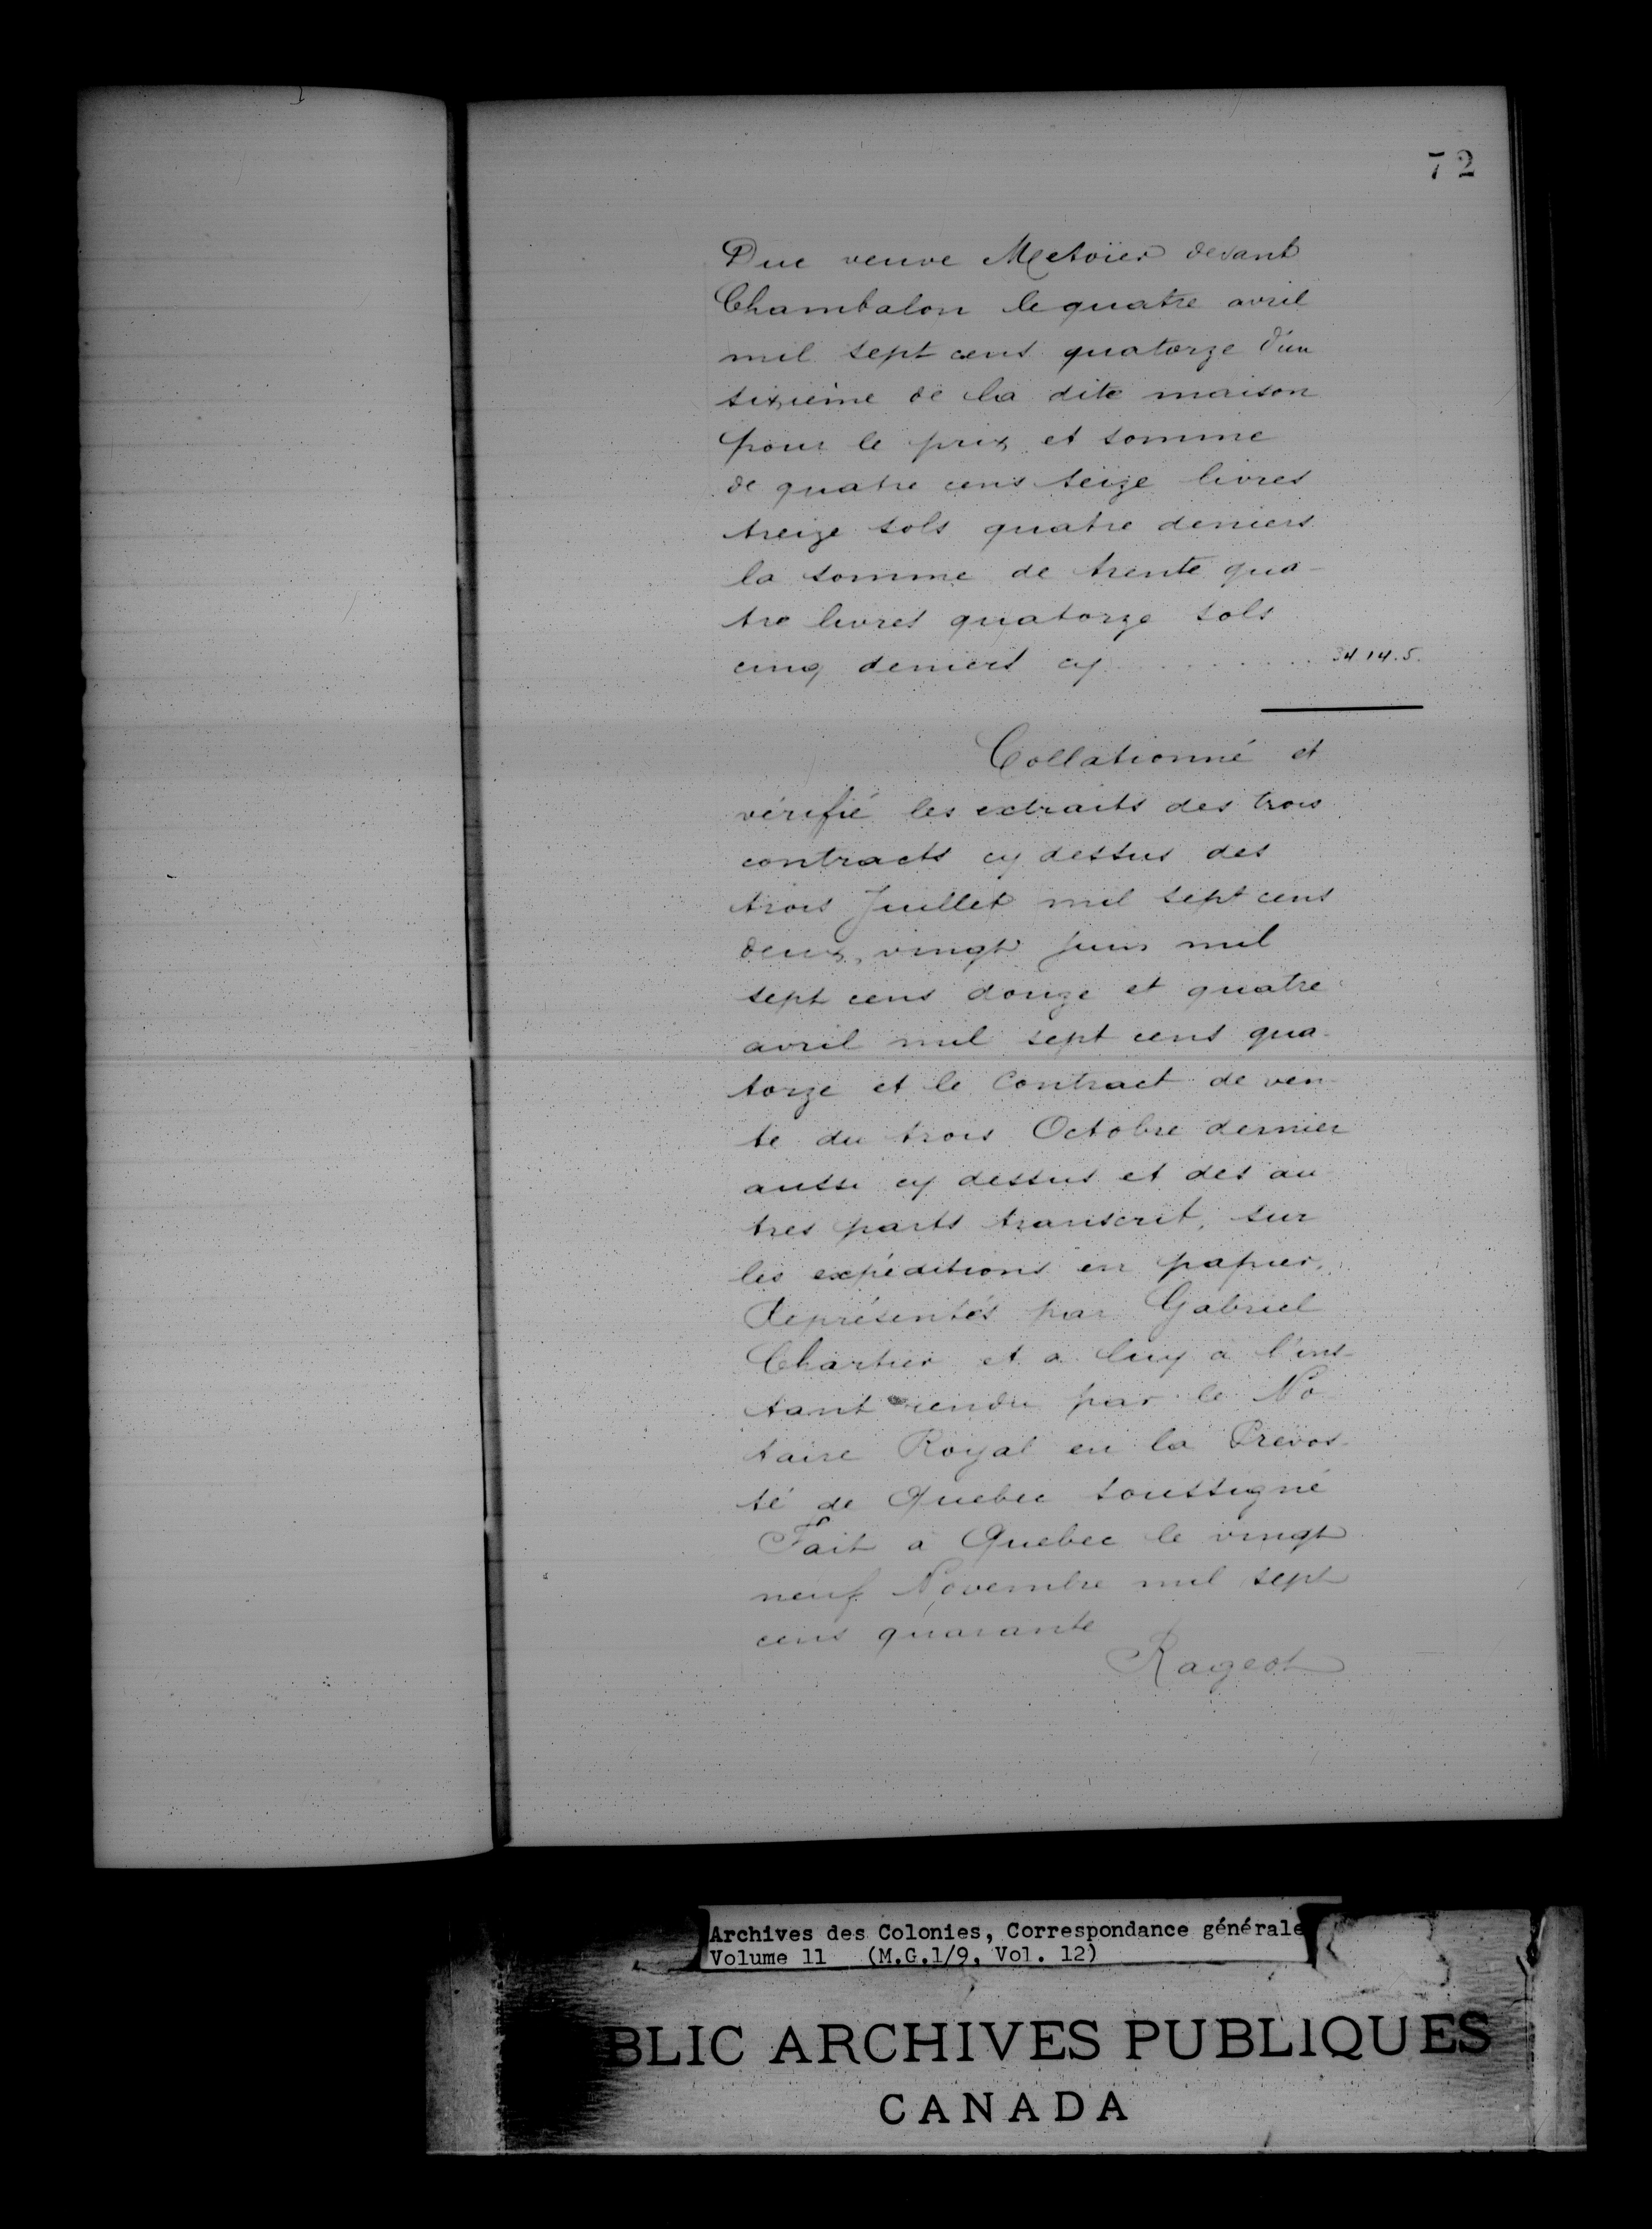 72
Duc veuve Metoïer devant
Chambalon le quatre avril
mil sept cens quatorze d'un
sixième de la dite maison
pour le prix et somme
de quatre cens seize livres
treize sols quatre deniers
la somme de trente qua-
tre livres quatorze sols
cinq deniers cy .......... 34 14.5.
Collationné et
vérifié les extraits des trois
contracts cy dessus des
trois Juillet mil sept cens
deux, vingt juin mil
sept cens douze et quatre
avril mil sept cens qua-
torze et le Contract de ven-
te du trois Octobre dernier
aussi cy dessus et des au
tres parts transcrit, sur
les expéditions en papier,
Représentés par Gabriel
Chartier et a luy a l'ins-
tant rendu par le No
taire Royal en la Prevos-
té de Quebec soussigné
Fait a Quebec le vingt
neuf Novembre mil sept
cens quarante
Rageot
Archives des Colonies, Correspondance générale
Volume 11 (M.G.1/9, Vol. 12)
BLIC ARCHIVES PUBLIQUES
CANADA